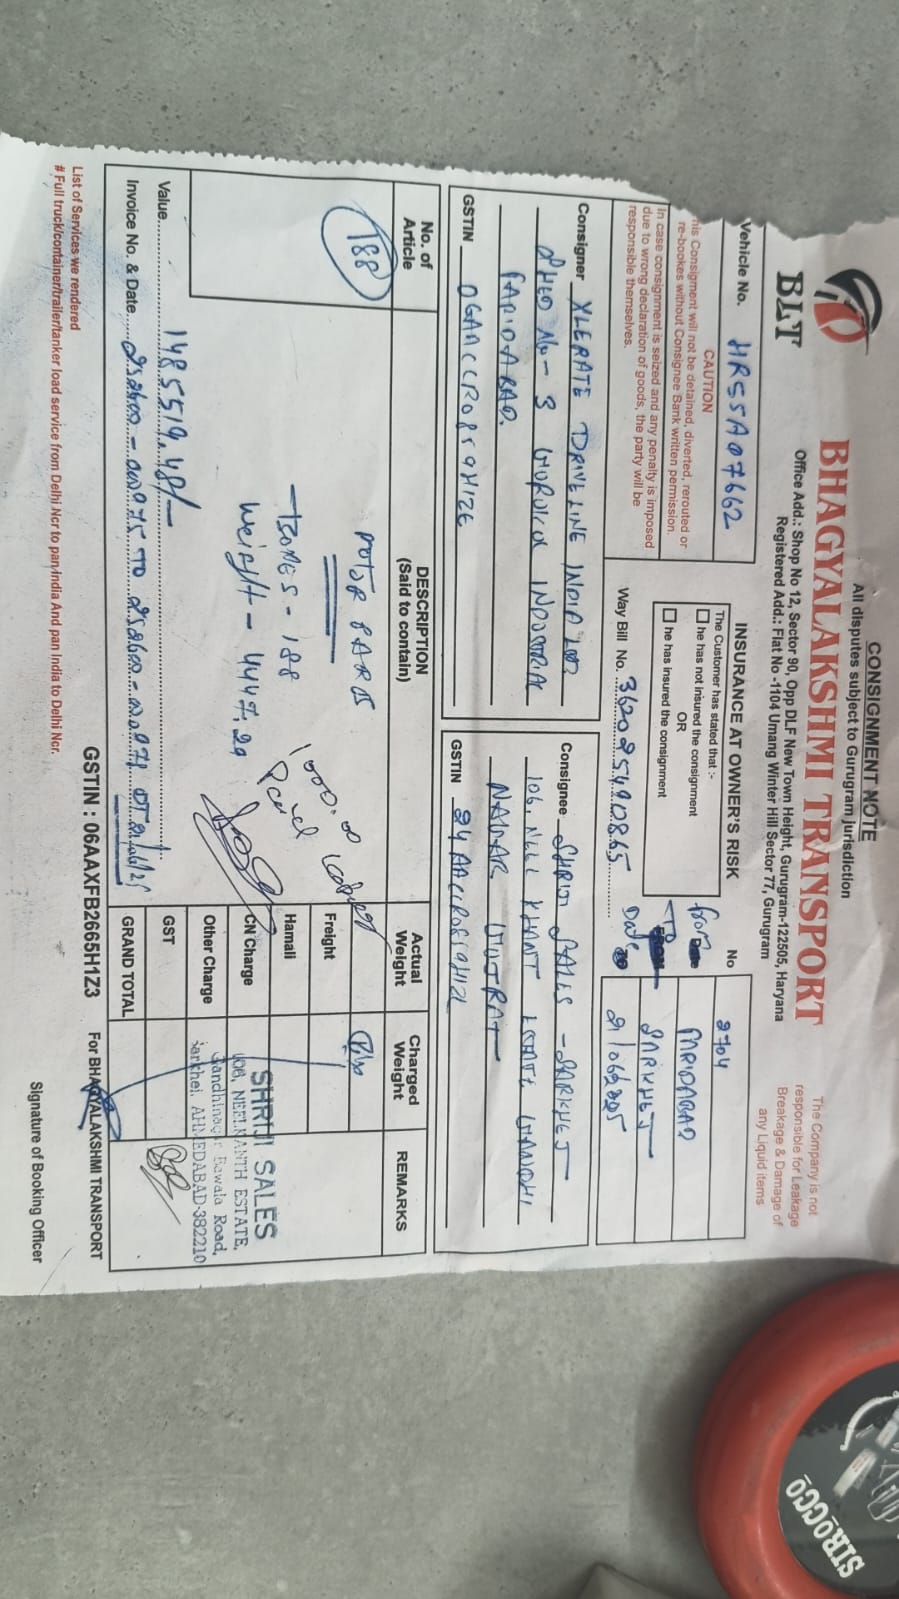 CONSIGNMENT NOTE
All disputes subject to Gurugram jurisdiction
BLT
BHAGYALAKSHMI TRANSPORT
Office Add.: Shop No 12, Sector 90, Opp DLF New Town Height, Gurugram-122505, Haryana
Registered Add.: Flat No -1104 Umang Winter Hill Sector 77, Gurugram
The Company is not
responsible for Leakage
Breakage & Damage of
any Liquid items
Vehicle No. HR55A07662
CAUTION
his Consigment will not be detained, diverted, rerouted or
re-bookes without Consignee Bank written permission.
In case consignment is seized and any penalty is imposed
due to wrong declaration of goods, the party will be
responsible themselves.
INSURANCE AT OWNER'S RISK
The Customer has stated that :-
he has not insured the consignment
OR
he has insured the consignment
Way Bill No.
No 2704
From FARIDABAD
TO SARKHEJ
Date 21/06/2025
Consigner XLERATE DRIVELINE INDIA LTD
SHED No- 3 INDUSTRIAL
FARIDABAD.
GSTIN
Consignee SHRIJI SALES - SARKHEJ
106, ESTATE GANDHI
NAGAR GUJRAT
GSTIN
No. of
Article
DESCRIPTION
(Said to contain)
Actual
Weight
Charged
Weight
REMARKS
188
MOTOR PARTS
- BOXES - 188
Weight - 4447.20
Freight
Hamali
CN Charge
Other Charge
GST
GRAND TOTAL
SHRIJI SALES
106, NEELKANTH ESTATE,
Gandhinagar Bawala Road,
Sarkhej, AHMEDABAD-382210
Value 1485519.48/-
Invoice No. & Date
GSTIN : 06AAXFB2665H1Z3
For BHAGYALAKSHMI TRANSPORT
List of Services we rendered
# Full truck/container/trailer/tanker load service from Delhi Ncr to pan India And pan India to Delhi Ncr.
Signature of Booking Officer
SIROCCO